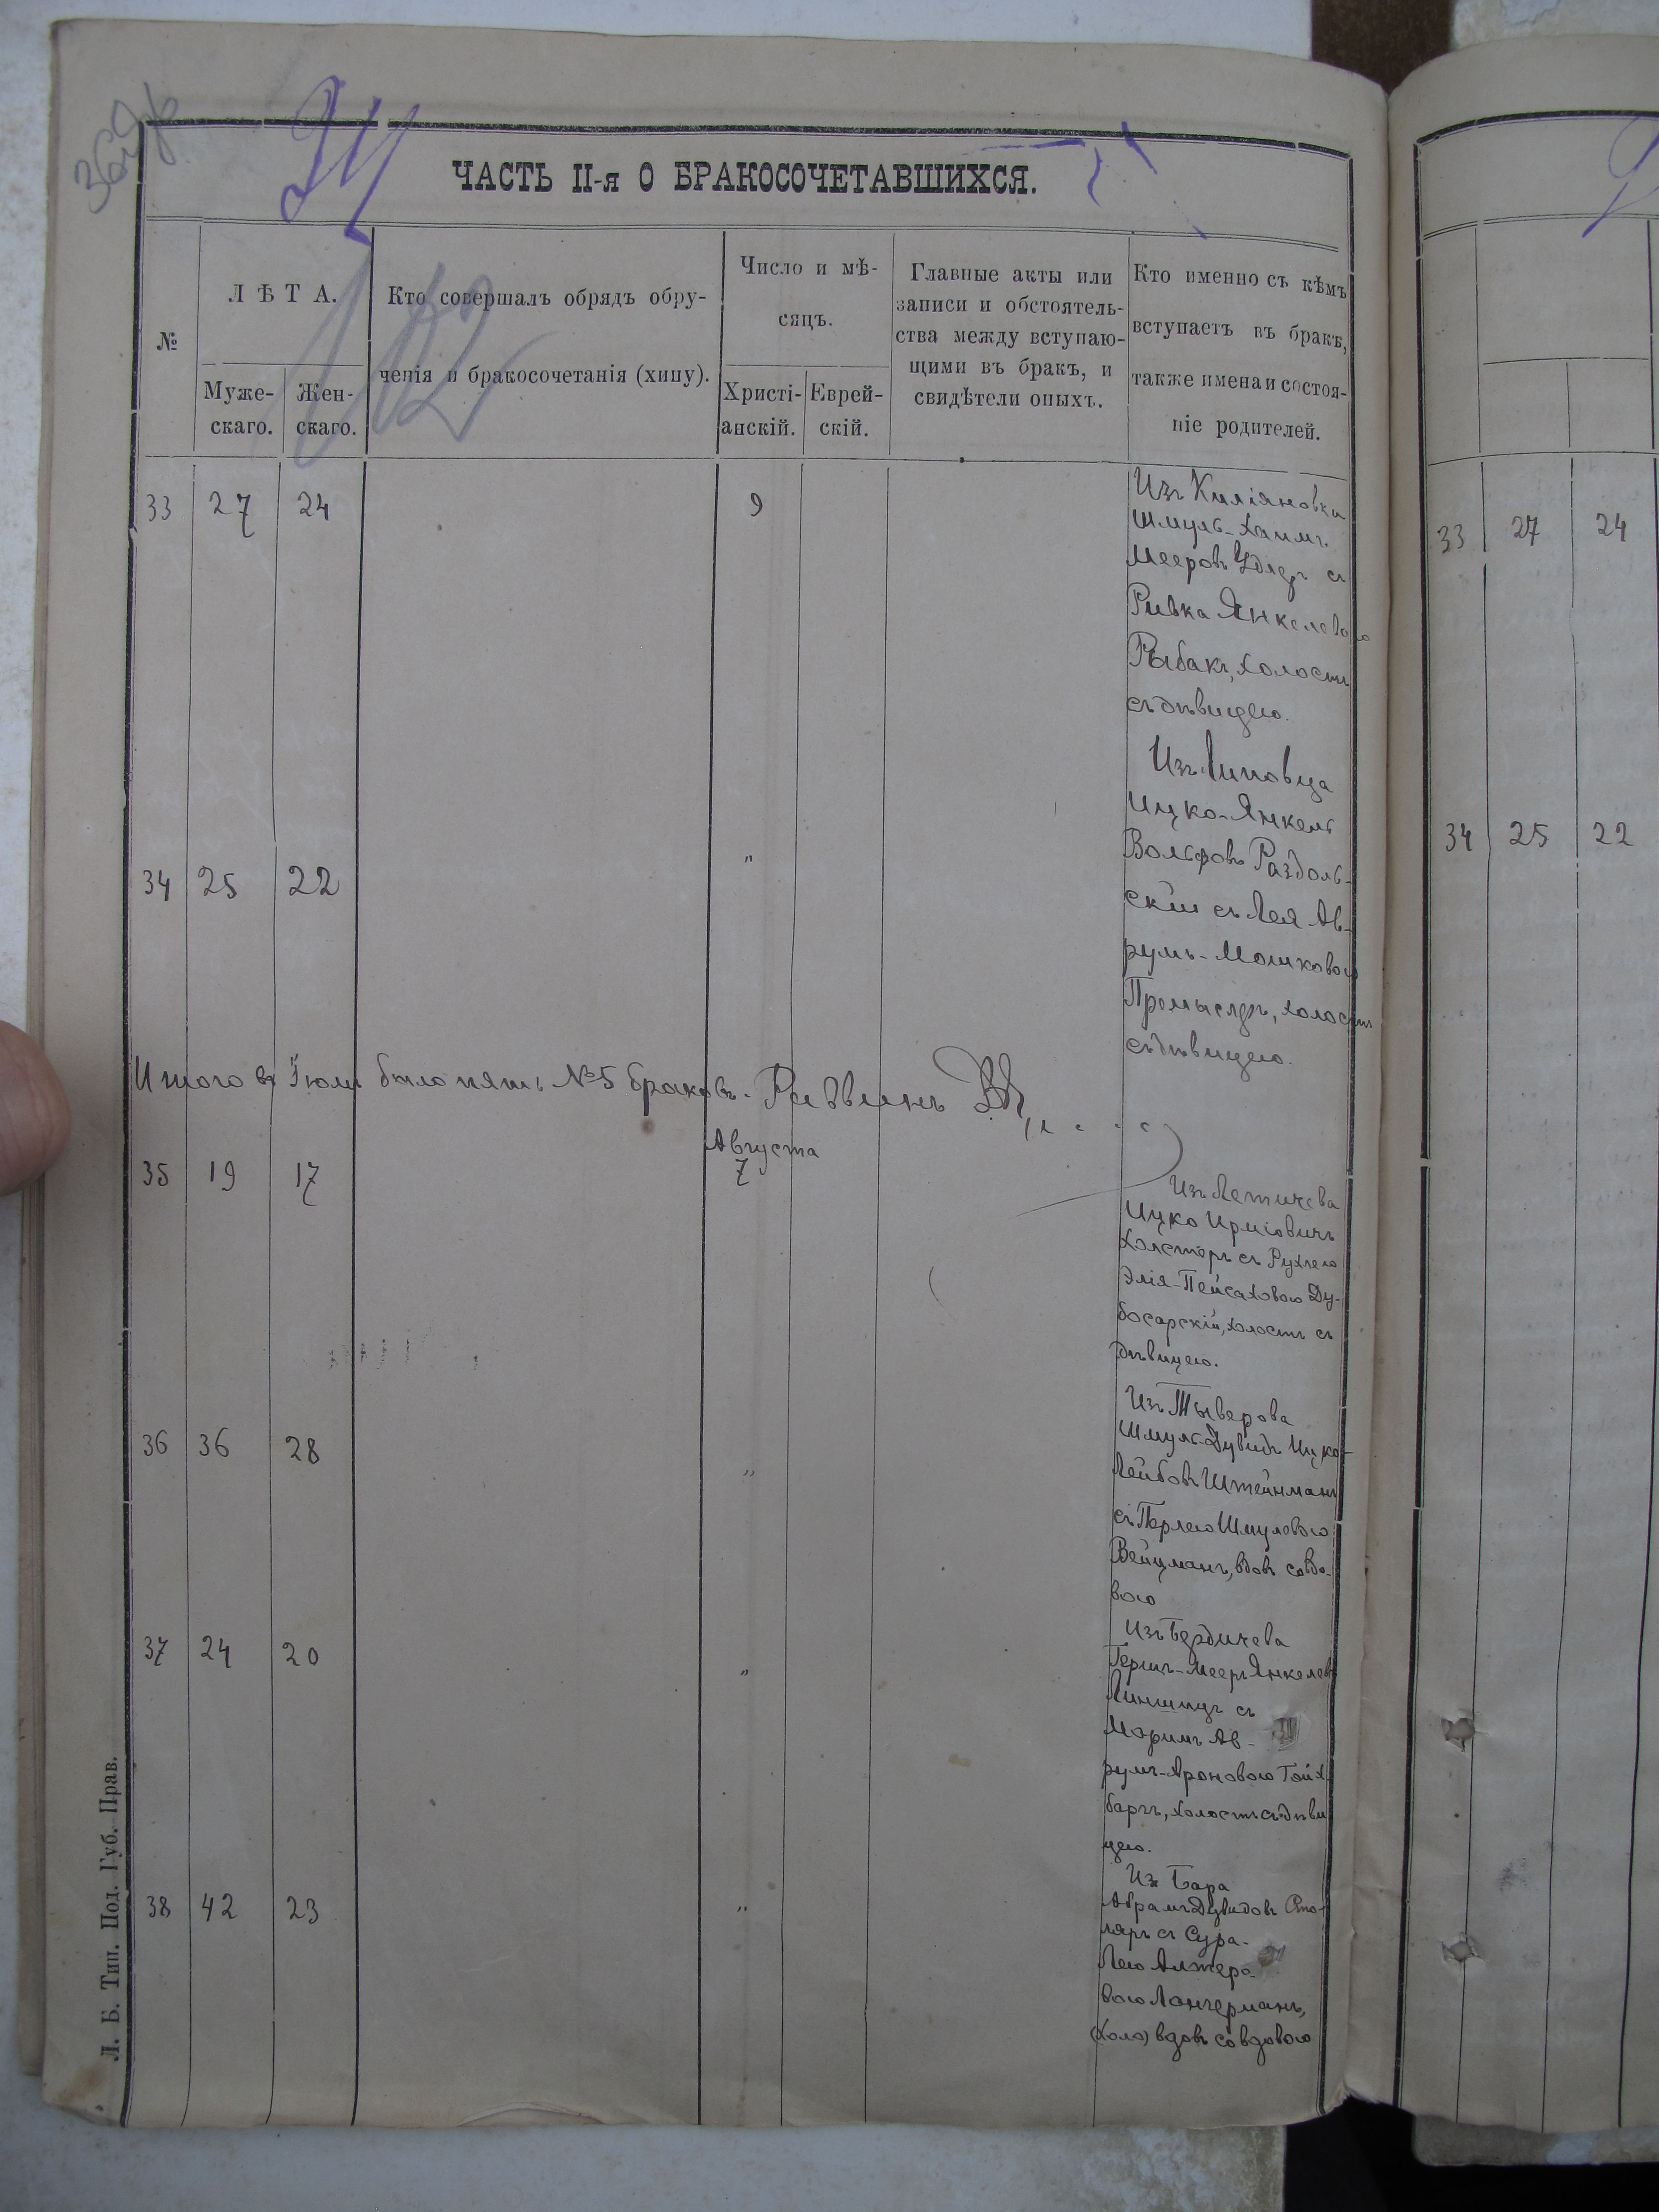 ЧАСТЬ II-я О БРАКОСОЧЕТАВШИХСЯ.
№
ЛѢТА.
Муже-
скаго.
Жен-
скаго.
Кто совершалъ обрядъ обру-
ченія и бракосочетанія (хипу).
Число и мѣ-
сяцъ.
Христі-
анскій.
Еврей-
скій.
Главные акты или
записи и обстоятель-
ства между вступаю-
щими въ бракъ, и
свидѣтели оныхъ.
Кто именно съ кѣмъ
вступаетъ въ бракъ,
также имена и состоя-
ніе родителей.
33 27 24 9
Изъ Киліяновки
Шмуль-Хаимъ
Мееровъ Удлеръ съ
Ривка Янкелевою
Рыбакъ, холостъ
съ дѣвицею.
34 25 22 "
Изъ Липовца
Ицко-Янкель
Вольфовъ Раздоль-
скій съ Лея Ав-
румъ-Мошковою
Промыслеръ, холостъ
съ дѣвицею.
Итого въ Іюлѣ было пять №5 браковъ. Раввинъ
Августа
35 19 17 7
Изъ Летичева
Ицко Срміовичъ
Холстеръ съ Рухлею
Элія-Пейсаховою Ду-
босарскій, холостъ съ
дѣвицею.
36 36 28 "
Изъ Тыверова
Шмуль-Дувидъ Ицко-
Лейбовъ Штейнманъ
съ Перлею Шмулевою
Вейцманъ, вдовъ совдо-
вою
37 24 20 "
Изъ Бердичева
Гершъ-Мееръ Янкелевъ
Линшицъ съ
Маримъ Ав-
румъ-Ароновою Гойх-
баргъ, холостъ съ дѣви
цею.
38 42 23 "
Изъ Бара
Абрамъ Дувидовъ Сто-
ляръ съ Сура-
Лею Алтеро-
вою Лангерманъ,
(холо) вдовъ совдовою
Л. Б. Тип. Под. Губ. Прав.
33 27 24
34 25 22